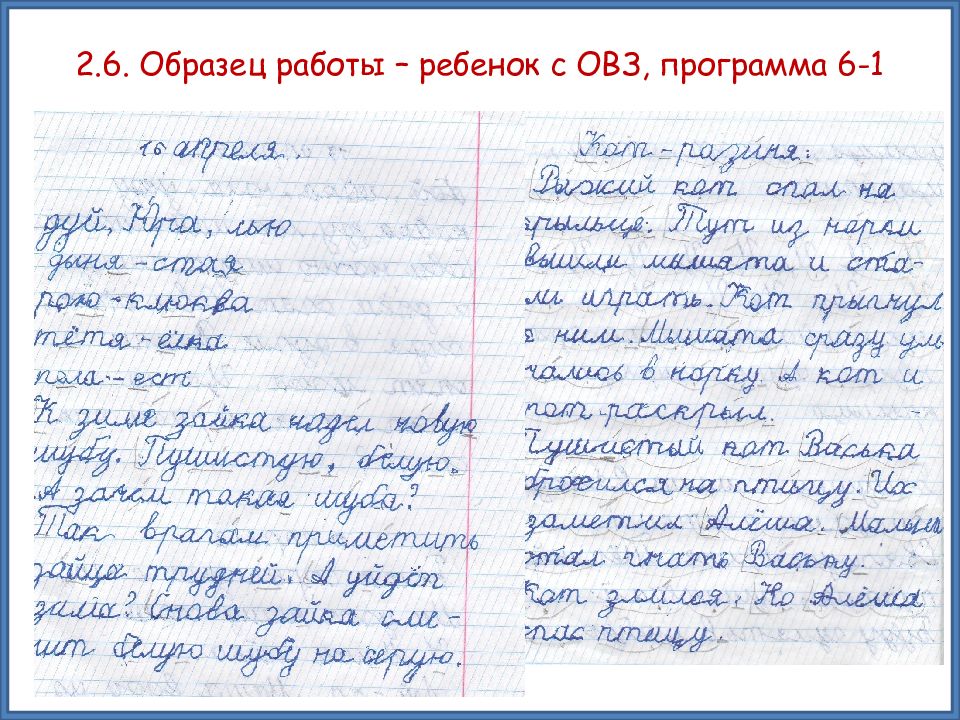 2.6. Образец работы – ребенок с ОВЗ, программа 6-1
16 апреля.
дуй, Юра, лью
дыня - стая
рою - клюква
тётя - ёлка
пела - ест
К зиме зайка надел новую
шубу. Пушистую, белую.
А зачем такая шуба?
Так врагам приметить
зайца трудней. А уйдёт
зама? Снова зайка сме-
нит белую шубу на серую.
Кот - разиня.
Рыжий кот спал на
крыльце. Тут из норки
вышли мышата и ста-
ли играть. Кот прыгнул
к ним. Мышата сразу умь
чались в норку. А кот и
рот раскрыл.
Пушистый кот Васька
бросился на птицу. Их
заметил Алёша. Мальчик
стал гнать Ваську.
Кот злился. Но Алёша
спас птицу.